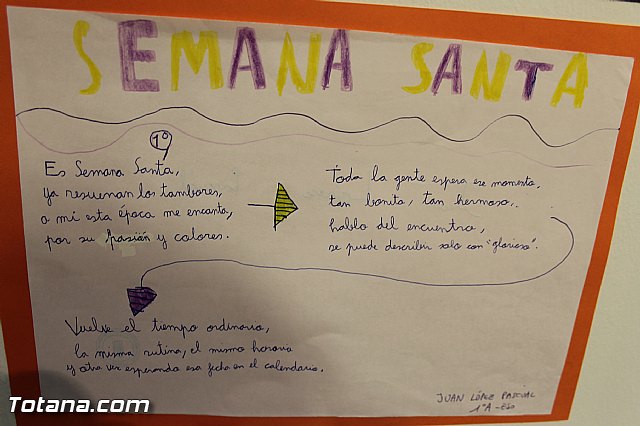 SEMANA SANTA
1º
Es Semana Santa,
ya resuenan los tambores,
a mí esta época me encanta,
por su pasión y colores.
Toda la gente espera ese momento,
tan bonito, tan hermoso,
hablo del encuentro,
se puede describir solo con "glorioso".
Vuelve el tiempo ordinario,
la misma rutina, el mismo horario
y otra vez esperando esa fecha en el calendario.
JUAN LÓPEZ PASCUAL
1ºA-ESO
Totana.com